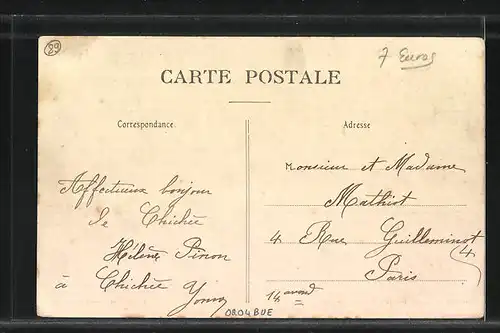 89
7 Euros
CARTE POSTALE
Correspondance
Adresse
Affectueux bonjour
de Chichée
Hélène Pinon
à Chichée Yonne
Monsieur et Madame
Mathiot
4 Rue Guilleminot
4
Paris
14
OROUBUE